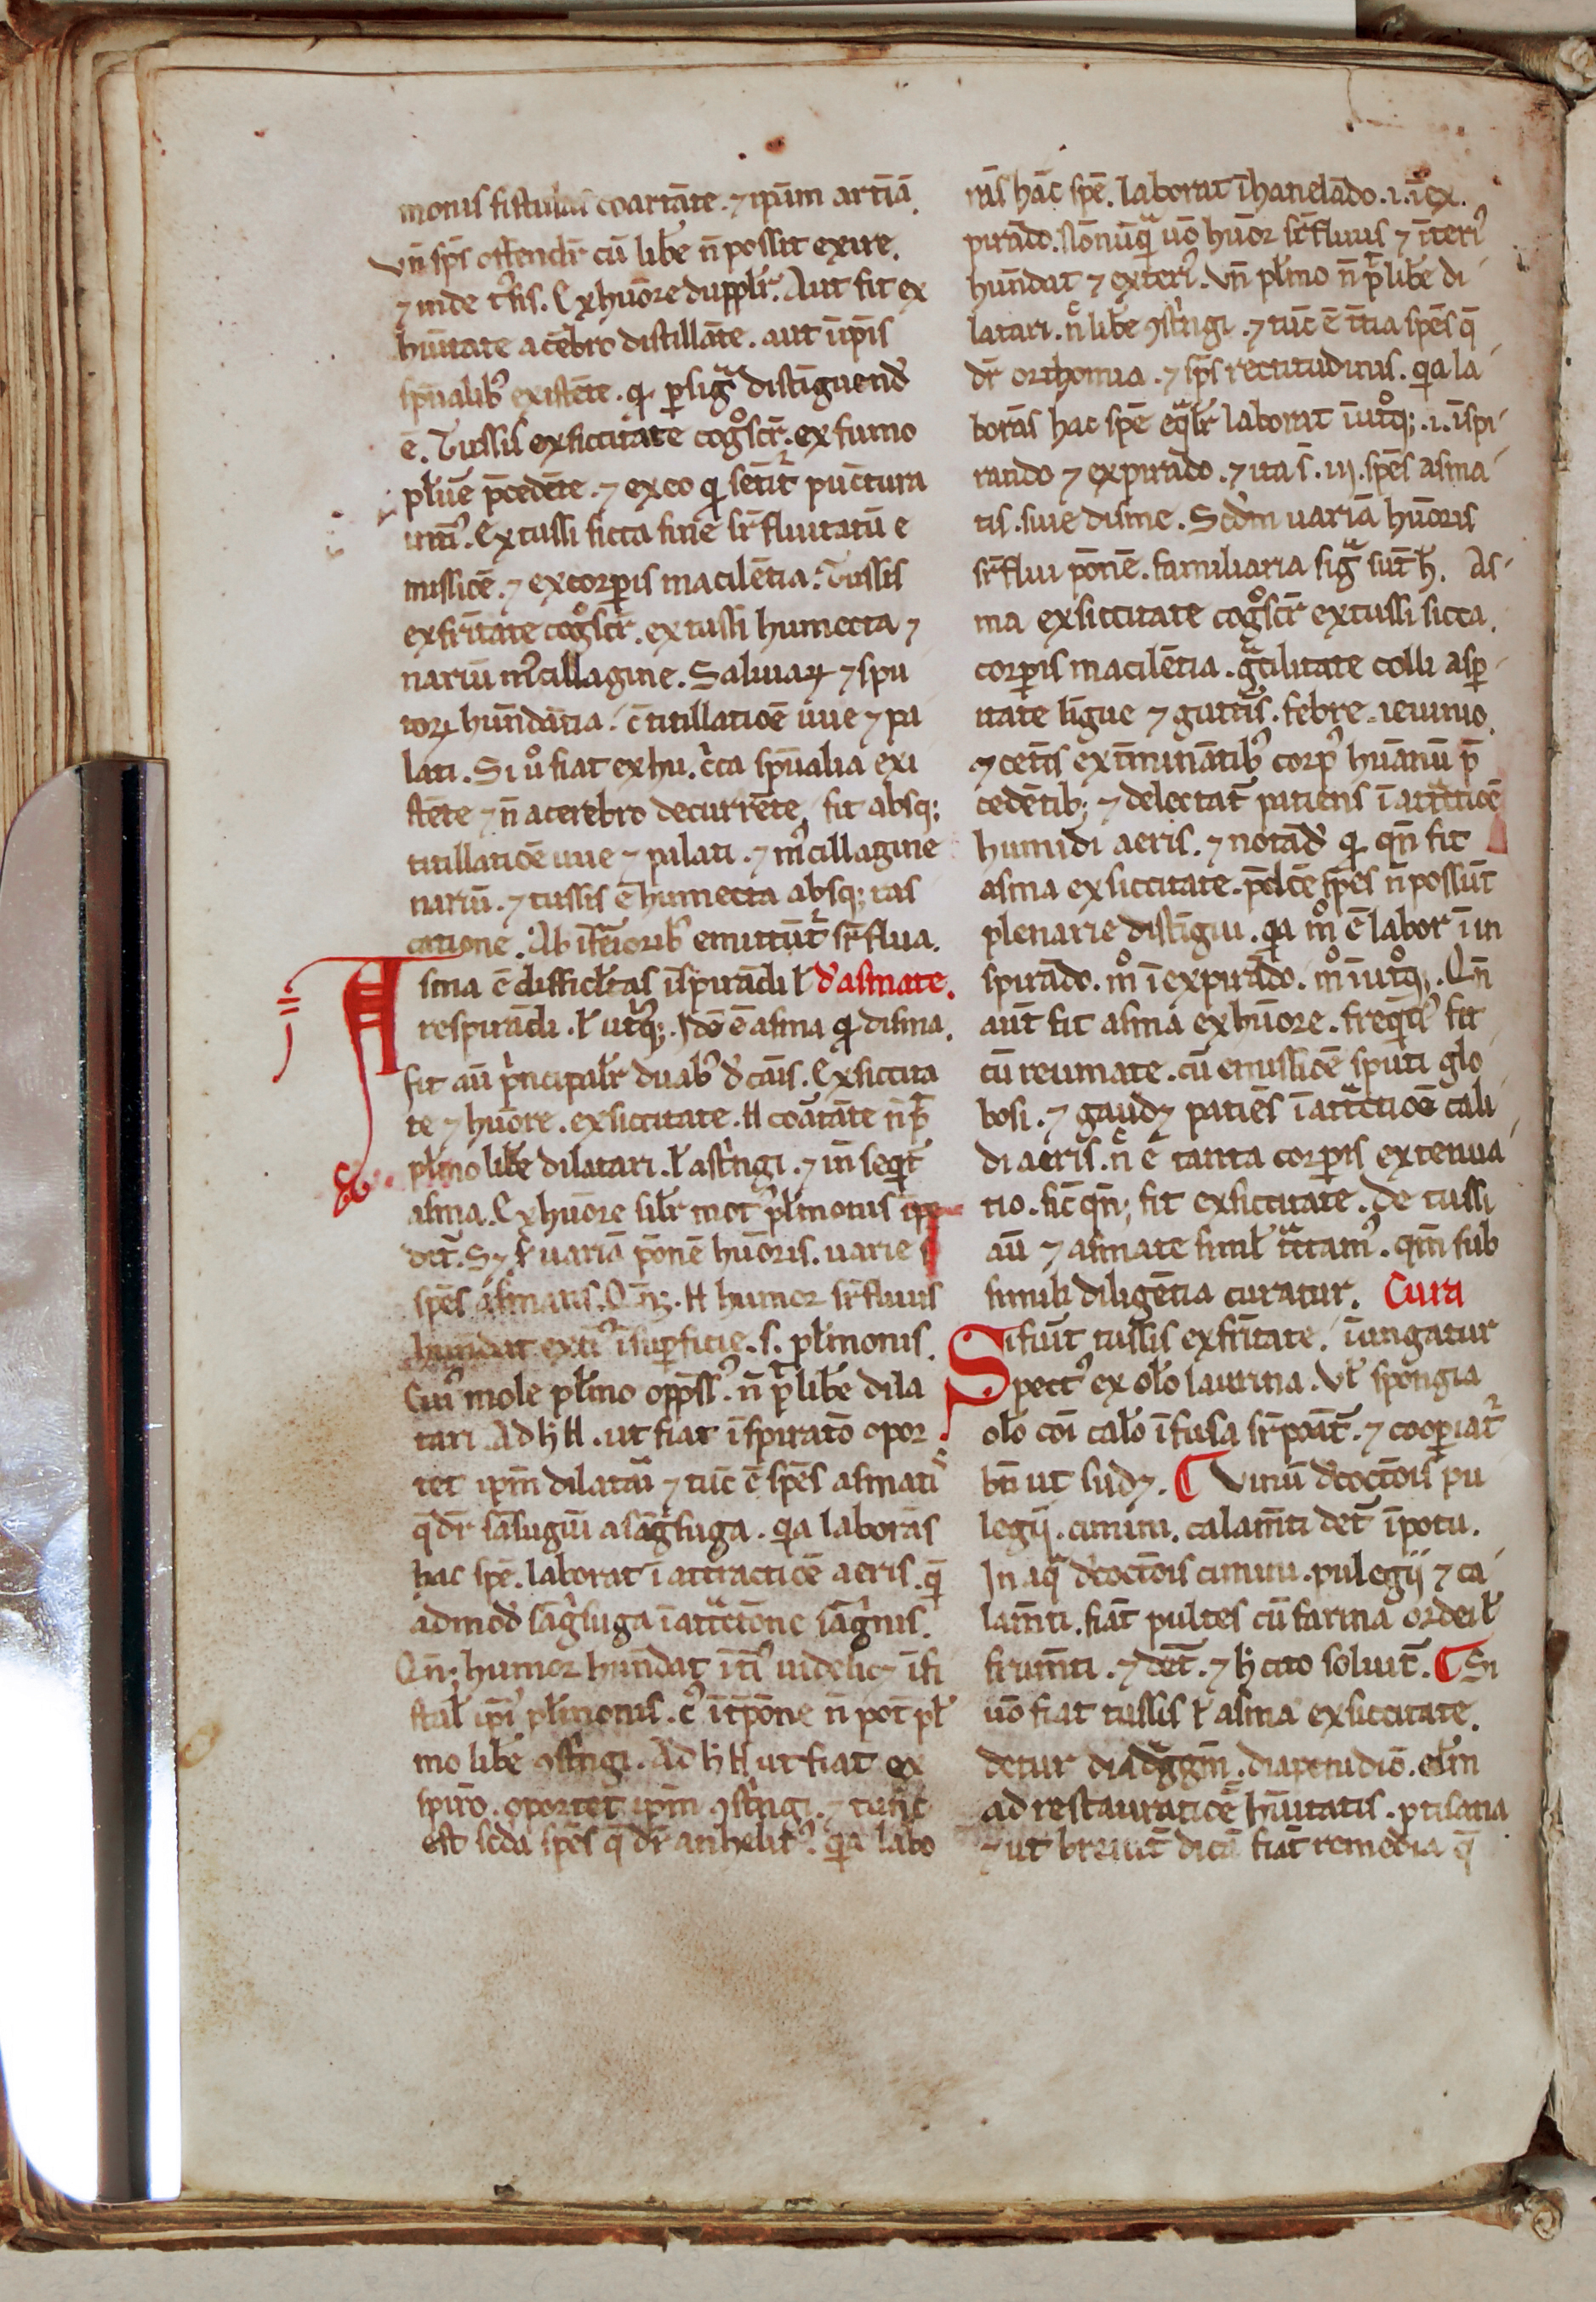 monis fistulas coartāte. ⁊ ipīm artīā.
vn̄ sp̄s offendit̄ cū libe n̄ possit exire.
⁊ inde t᷑sis. Ex huōre dupplr̄. Aut fit ex
hūītate a cēbro distillāte. aut ī ip̄is
sp̄ualibꝰ existēte. qͥ ꝑ sigͣ distīguend̄
ē. Tussis ex siccitate cogͦscr̄. ex fumo
pl̄ue p̄cedēte. ⁊ ex eo qͥ sētīt᷑ pūctura
Ex tussi sicca sine sr̄fluitatū e
missiōe. ⁊ ex corꝑis macilētia. Tussis
ex fr̄itate cogͦscr̄. ex tussi humecta ⁊
nariū mᷓcillagine. Saliuaꝝ ⁊ spu
toꝝ hun̄dātia. c̄ titillatiōe uue ⁊ pa
lati. Si uͦ fiat ex hu. cͥca sp̄ualia exi
stēte ⁊ n̄ a cerebro decurrēte, fit absqꝫ
titillatiōe uue ⁊ palati. ⁊ mᷓcillagine
nariū. ⁊ tussis ē humecta absqꝫ ras
catione. Ab īterioribꝰ emittūt᷑ sr̄flua.
Asma ē difficl̄tas īspirādi l̄ d̄ asmate.
respirādi. l̄ utͥqꝫ. Idē ē asma qͥ disma.
fit aū pͥncipalr̄ duabꝰ d̄ cāis. Ex siccita
te ⁊ huōre. ex siccitate. H̄ coartāte n̄ p̄t
pl̄mo libe dilatari. l̄ astͥngi. ⁊ īn seqͥt᷑
asma. Ex huōre silr̄ motꝰ pl̄monis īpe
det᷑. Sꝫ ẜ uariā p̄onē huōris. uarie s̄
spēs asmatis. Qn̄qꝫ. H̄ humor sr̄fluus
hun̄dat extͥꝰ ī suꝑficie. s. pl̄monis.
Cuiꝰ mole pl̄mo opp̄ssꝰ. n̄ p̄t libe dila
tari. Ad h̄ H̄. ut fiat īspiratō opor
tet ip̄m dilatari ⁊ tūc ē spēs asmatis
q̄ dr̄ sāsugiū a sāgͥsuga. qͥa laborās
hac spē. laborat ī attractiōe aeris. qͥ
admod̄ sāgͥsuga ī attͣctōne sāgͥnis.
Qn̄qꝫ humor hun̄dat ītͥꝰ uidelicꝫ ī fi
stul̄ ip̄iꝰ pl̄monis. cꝰ īt̄pōne n̄ pōt pl̄
mo libe ꝯstͥngi. Ad h̄ H̄ ut fiat ex
spirō. oportet ip̄m ꝯstͥngi. ⁊ tūc
est sc̄da spēs q̄ dr̄ anhelitꝰ. qͥa labo
rās hāc spē. laborat ī hanelādo. i. ī ex
pirādo. Nōnūqͣ uō huōr sr̄fluus ⁊ īteriꝰ
hun̄dat ⁊ exteriꝰ. Vn̄ pl̄mo n̄ p̄t libe di
latari. n̄c libe ꝯstͥngi. ⁊ tūc ē t̄tia spēs q̄
dr̄ orthomia. ⁊ sp̄s rectitudinis. qͥa la
borās hac spē eqͣlr̄ laborat ī utͦqꝫ. i. īspi
rando ⁊ expirādo. ⁊ ita s̄. iij. spēs asma
tis. siue disme. Scd̄m uariā huōris
sr̄flui p̄onē. familiaria sigͣ sūt h̄. As
ma ex siccitate cogͦscr̄ ex tussi sicca.
corꝑis macilētia. gͣcilitate colli asꝑ
itate līgue ⁊ gutt᷑is. febre. ieiunio.
⁊ cet᷑is ext᷑minātibꝰ corpꝰ huānū p̄
cedētibꝫ ⁊ delectat᷑ patiens ī attͣctiōe
humidi aeris. ⁊ notād̄ qͥ qn̄ fit
asma ex siccitate. p̄dc̄e spēs n̄ possūt
plenarie distīgui. qͥa mͦ ē labor ī in
spirādo. mͦ ī expirādo. mͦ ī utͦqꝫ. Qn̄
aūt fit asma ex huōre. freqͣtiꝰ fit
cū reumate. cū emissiōe sputi glo
bosi. ⁊ gaudꝫ patiēs ī attͣctiōe cali
di aeris. n̄c ē tanta corꝑis extenua
tio. sic̄ qn̄qꝫ fit ex siccitate. De tussi
aū ⁊ asmate simil̄ tͣctamꝰ. qm̄ sub
simili diligētia curatur. Cura
Si fuīt tussis ex fr̄itate. īungatur
pectꝰ ex ol̄o laurina. Vl̄ spōngia
ol̄o cōi cal̄o īfusa sr̄poāt᷑. ⁊ cooꝑiat᷑
bn̄ ut sudꝫ. ¶ Vinū d̄coctōis pu
legij. cimini. calam̄ti det᷑ ī potu.
In aqͣ d̄coctōis cimini. pulegij ⁊ ca
lam̄ti. fiāt pultes cū farina ordei l̄
frum̄ti. ⁊ det᷑. ⁊ h̄ cito soluit᷑. ¶ Si
uō fiat tussis l̄ asma ex siccitate.
detur diadͣggm̄. diapenidiō.
ad restauratiōē hūītatis. ptisana
⁊ ut breuit᷑ dicā fiāt remedia q̄